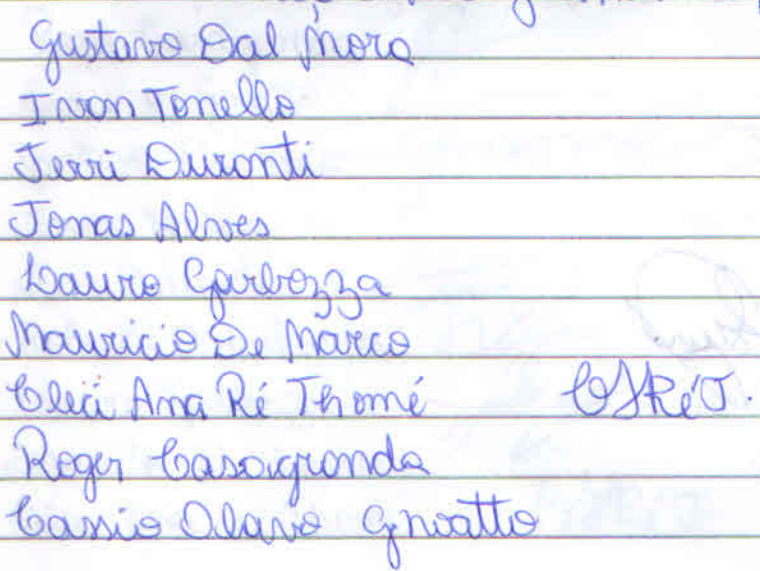 Gustavo Dal Mora
Ivan Tonello
Jerri Duranti
Jonas Alves
Lauro Garbozza
Mauricio De Marco
Cleci Ana Ré Thomé
Roger Casagranda
Cassio Olavo Gnoatto